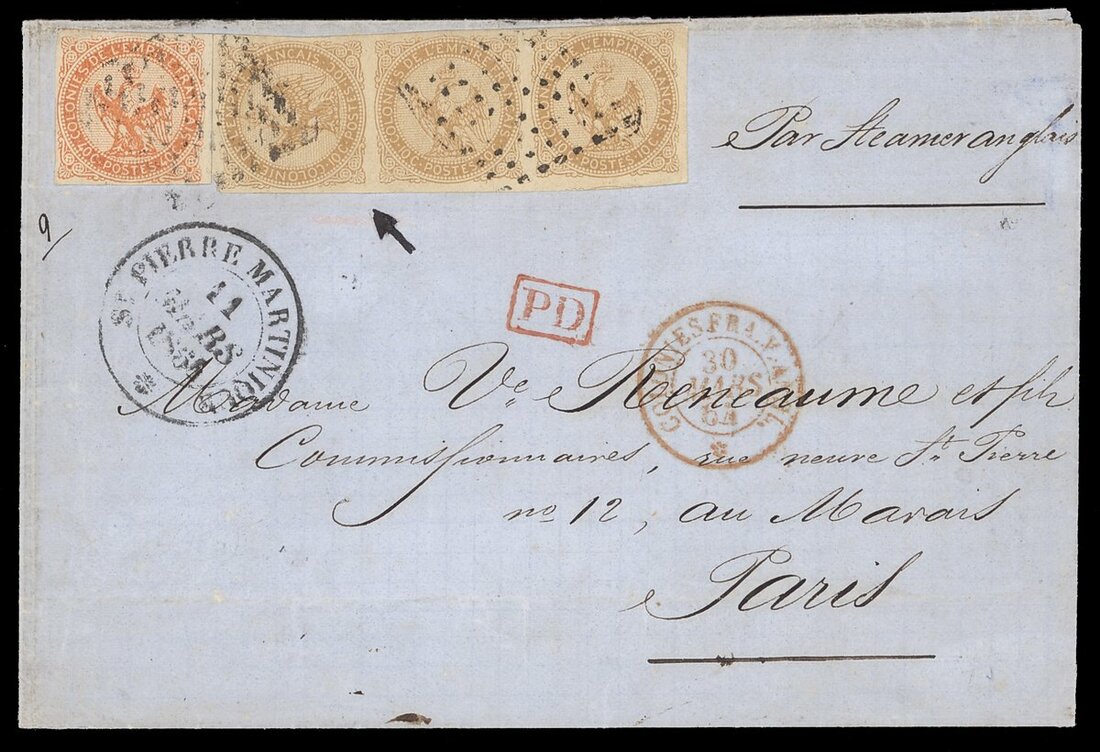 COLONIES DE L'EMPIRE FRANÇAIS
40C·POSTES·40C
COLONIES DE L'EMPIRE FRANÇAIS
10C·POSTES·10C
COLONIES DE L'EMPIRE FRANÇAIS
10C·POSTES·10C
COLONIES DE L'EMPIRE FRANÇAIS
10C·POSTES·10C
Par Steamer anglais
9/
ST PIERRE MARTINIQUE
11
MARS
PD
COLONIES FRA. V. ANGL.
30
MARS
64
Madame Ve Reneaume et fils
Commissionnaires, rue neuve St Pierre
no 12, au Marais
Paris